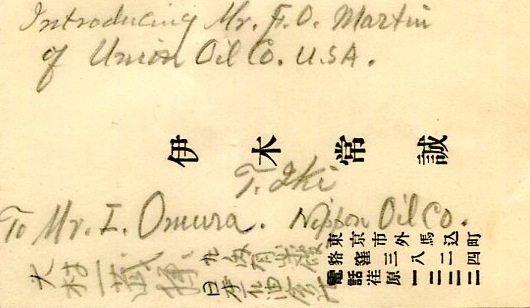 Introducing Mr. F. O. Martin
of Union Oil Co. U.S.A.
伊木常誠
T. Iki
To Mr. I. Omura. Nippon Oil Co.
大村一蔵
東京市外馬込町
三八二四
電話荏原一二二二